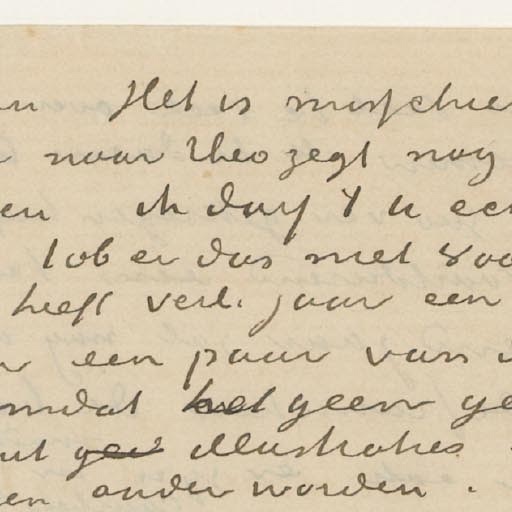 Het is misschie
naar Theo zegt nog
en ik durf 't u
tob er dus met voo
heeft verl. jaar een
een paar van
omdat het geen ge
illustraties
en ander worden.